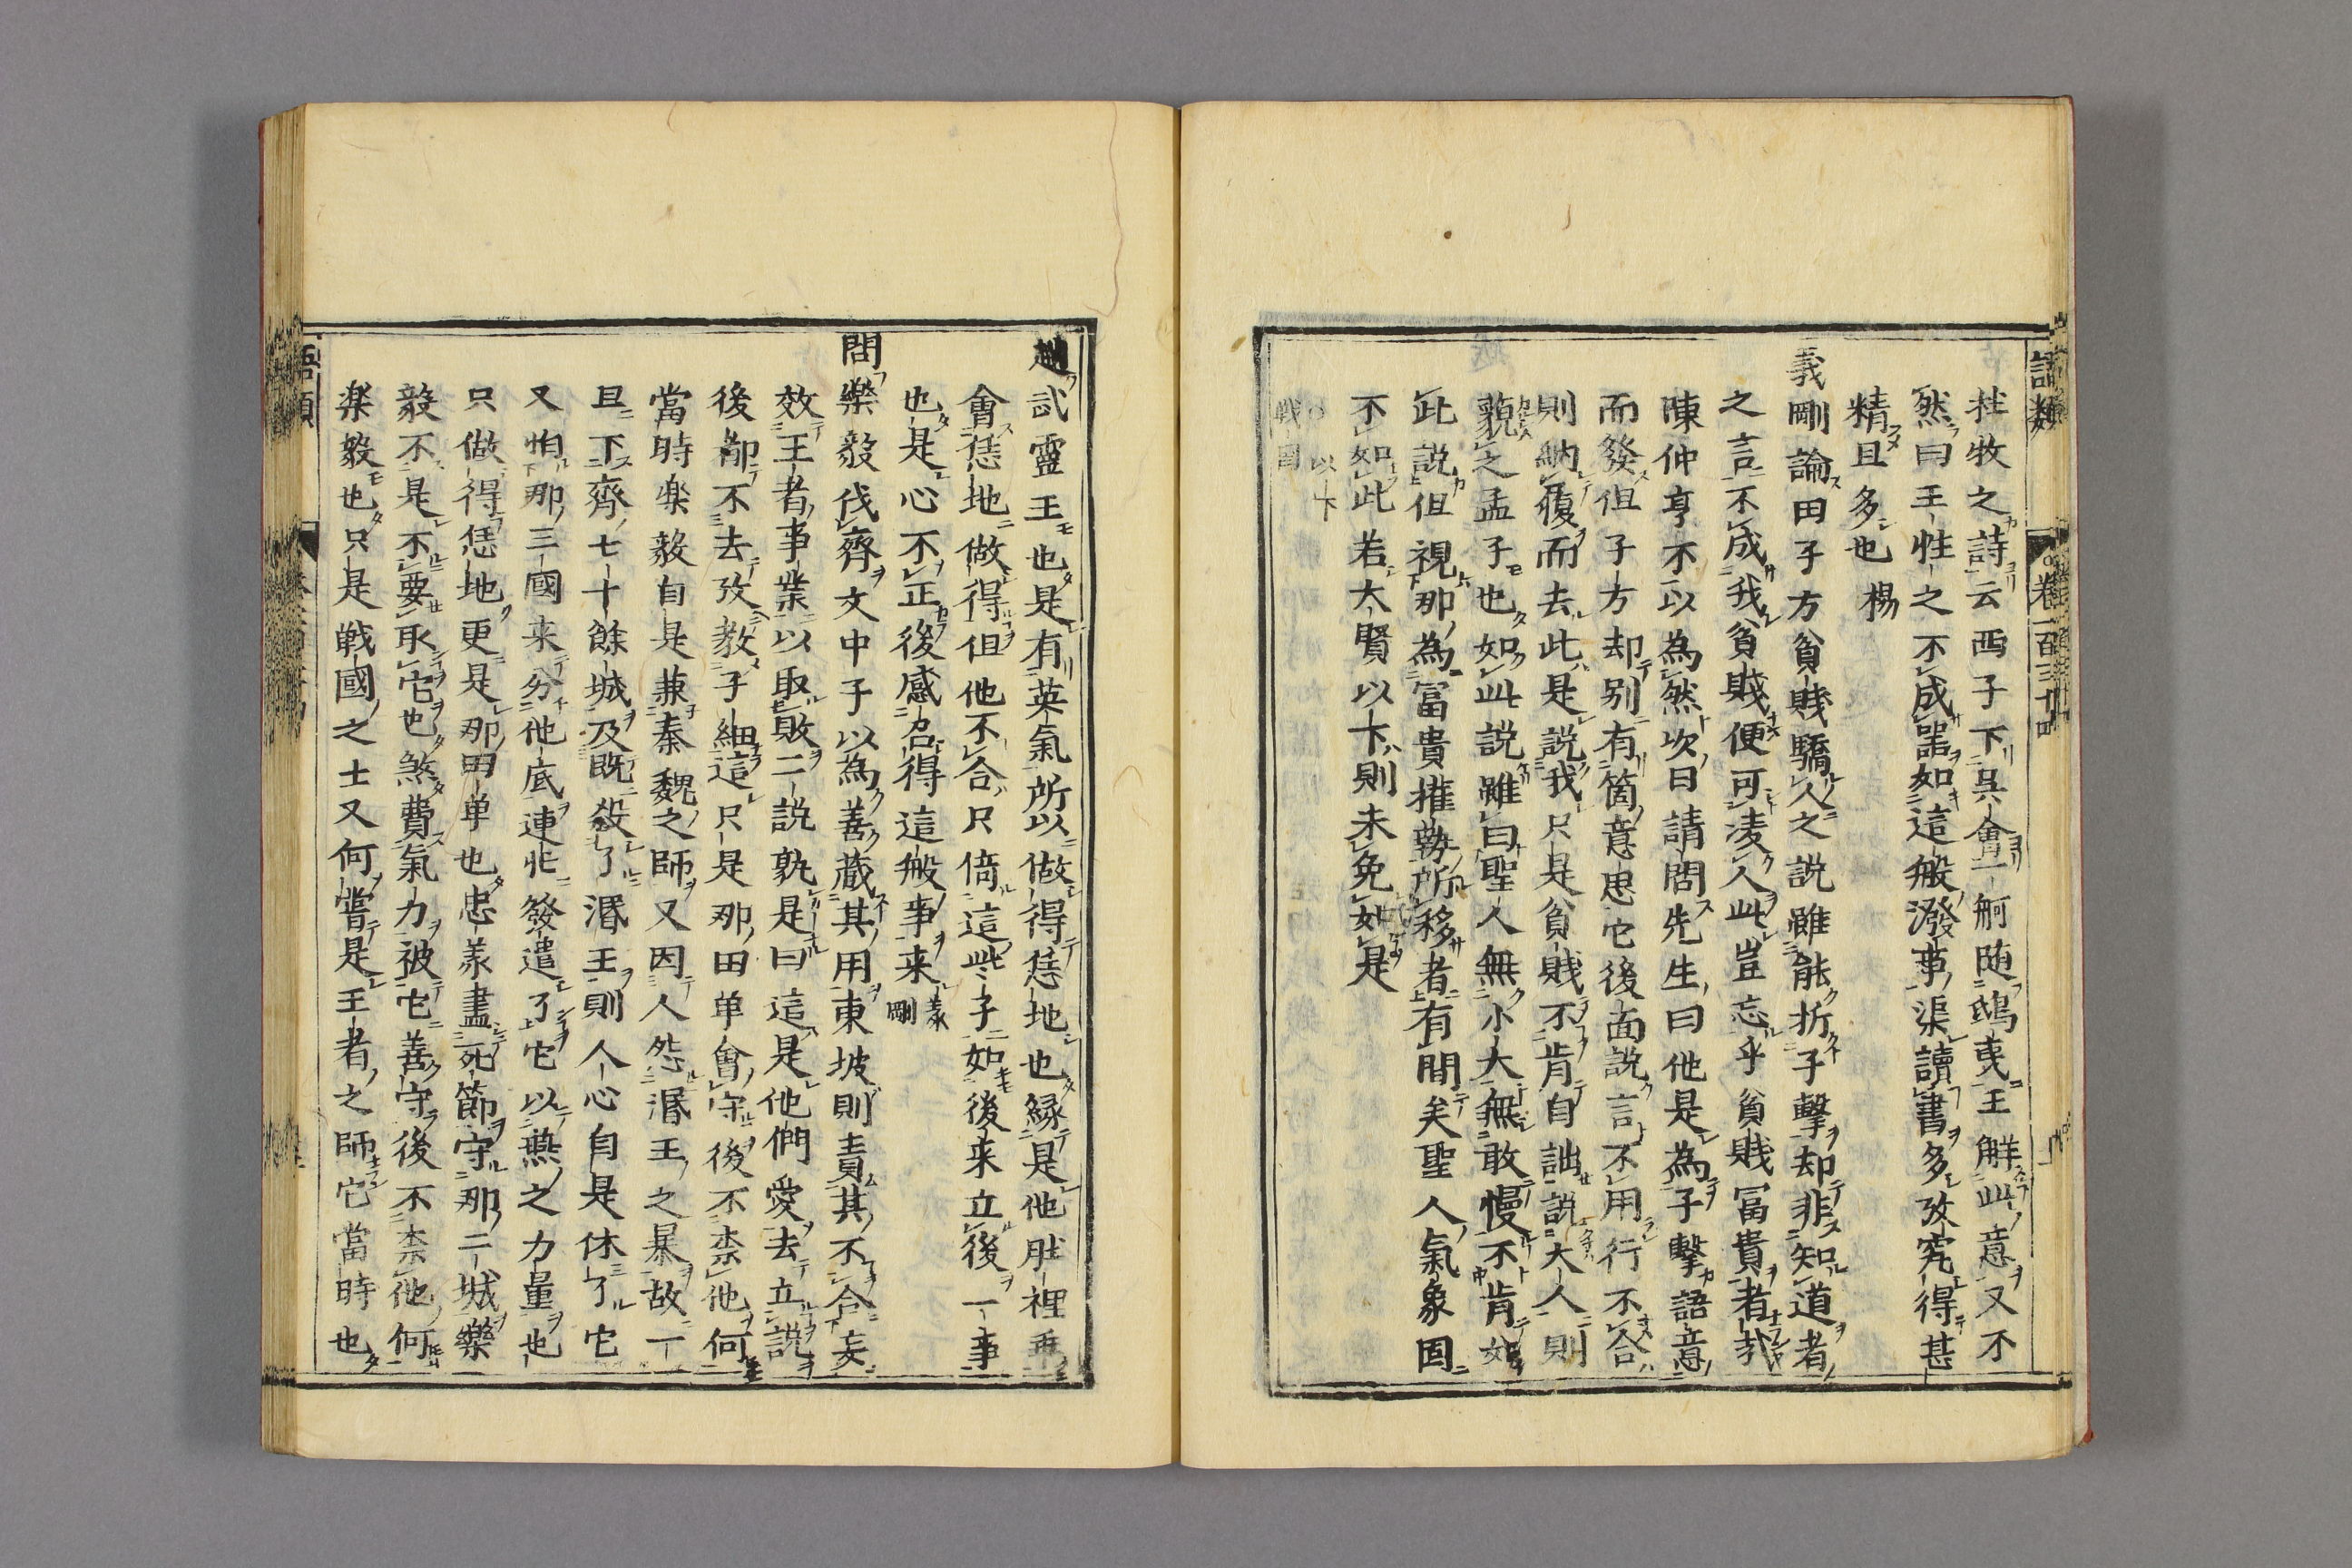 語類
卷一百三十四
杜牧之詩云西子下吳會一舸随鴟夷王觧此意又不
然曰王性之不成噐如這般潑事渠讀書多攷究得甚
精且多也 楊
義剛論田子方貧賤驕人之説雖能折子擊却非知道者
之言不成我貧賤便可凌人此豈忘乎貧賤冨貴者哉
陳仲亨不以為然次日請問先生曰他是為子擊語意
而發但子方却别有箇意思它後面説言不用行不合
則納履而去此是説我只是貧賤不肯自詘説大人則
藐之孟子也如此説雖曰聖人無小大無敢慢不肯如
此説但視那為冨貴權勢所移者有間矣聖人氣象固
不如此若大賢以下則未免如是
以下
戦國
趙武靈王也是有英氣所以做得恁地也緣是他肚裡乖
會恁地做得但他不合只倚這些子如後来立後一事
也是心不正後感召得這般事来 義剛
問樂毅伐齊文中子以為善藏其用東坡則責其不合妄
效王者事業以取敗二説孰是曰這是他們愛去立説
後都不去攷教子細這只是那田単會守後不柰他何
當時楽毅自是兼秦魏之師又因人怨湣王之暴故一
旦下齊七十餘城及既殺了湣王則人心自是休了它
又怕那三國来分他底連忙發遣了它以燕之力量也
只做得恁地更是那田単也忠義盡死節守那二城樂
毅不是不要取它也煞費氣力被它善守後不柰他何
楽毅也只是戦國之士又何嘗是王者之師它當時也
語類